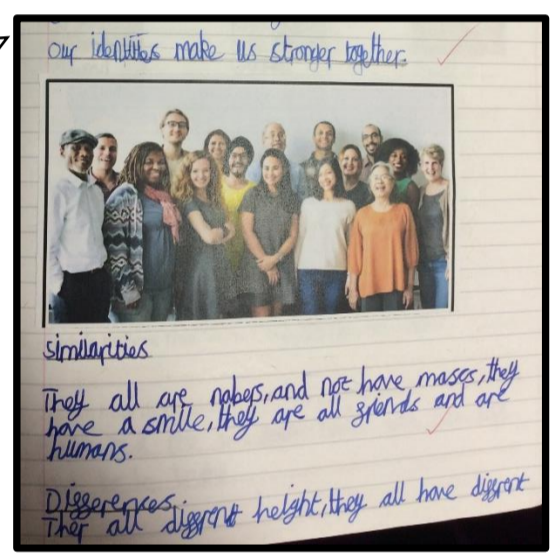 our identities make us stronger together.
similarities
They all are nabers, and not have mascs, they
have a smile, they are all griends and are
humans.
Diggerences
Ther all diggrent height, they all have diggrent